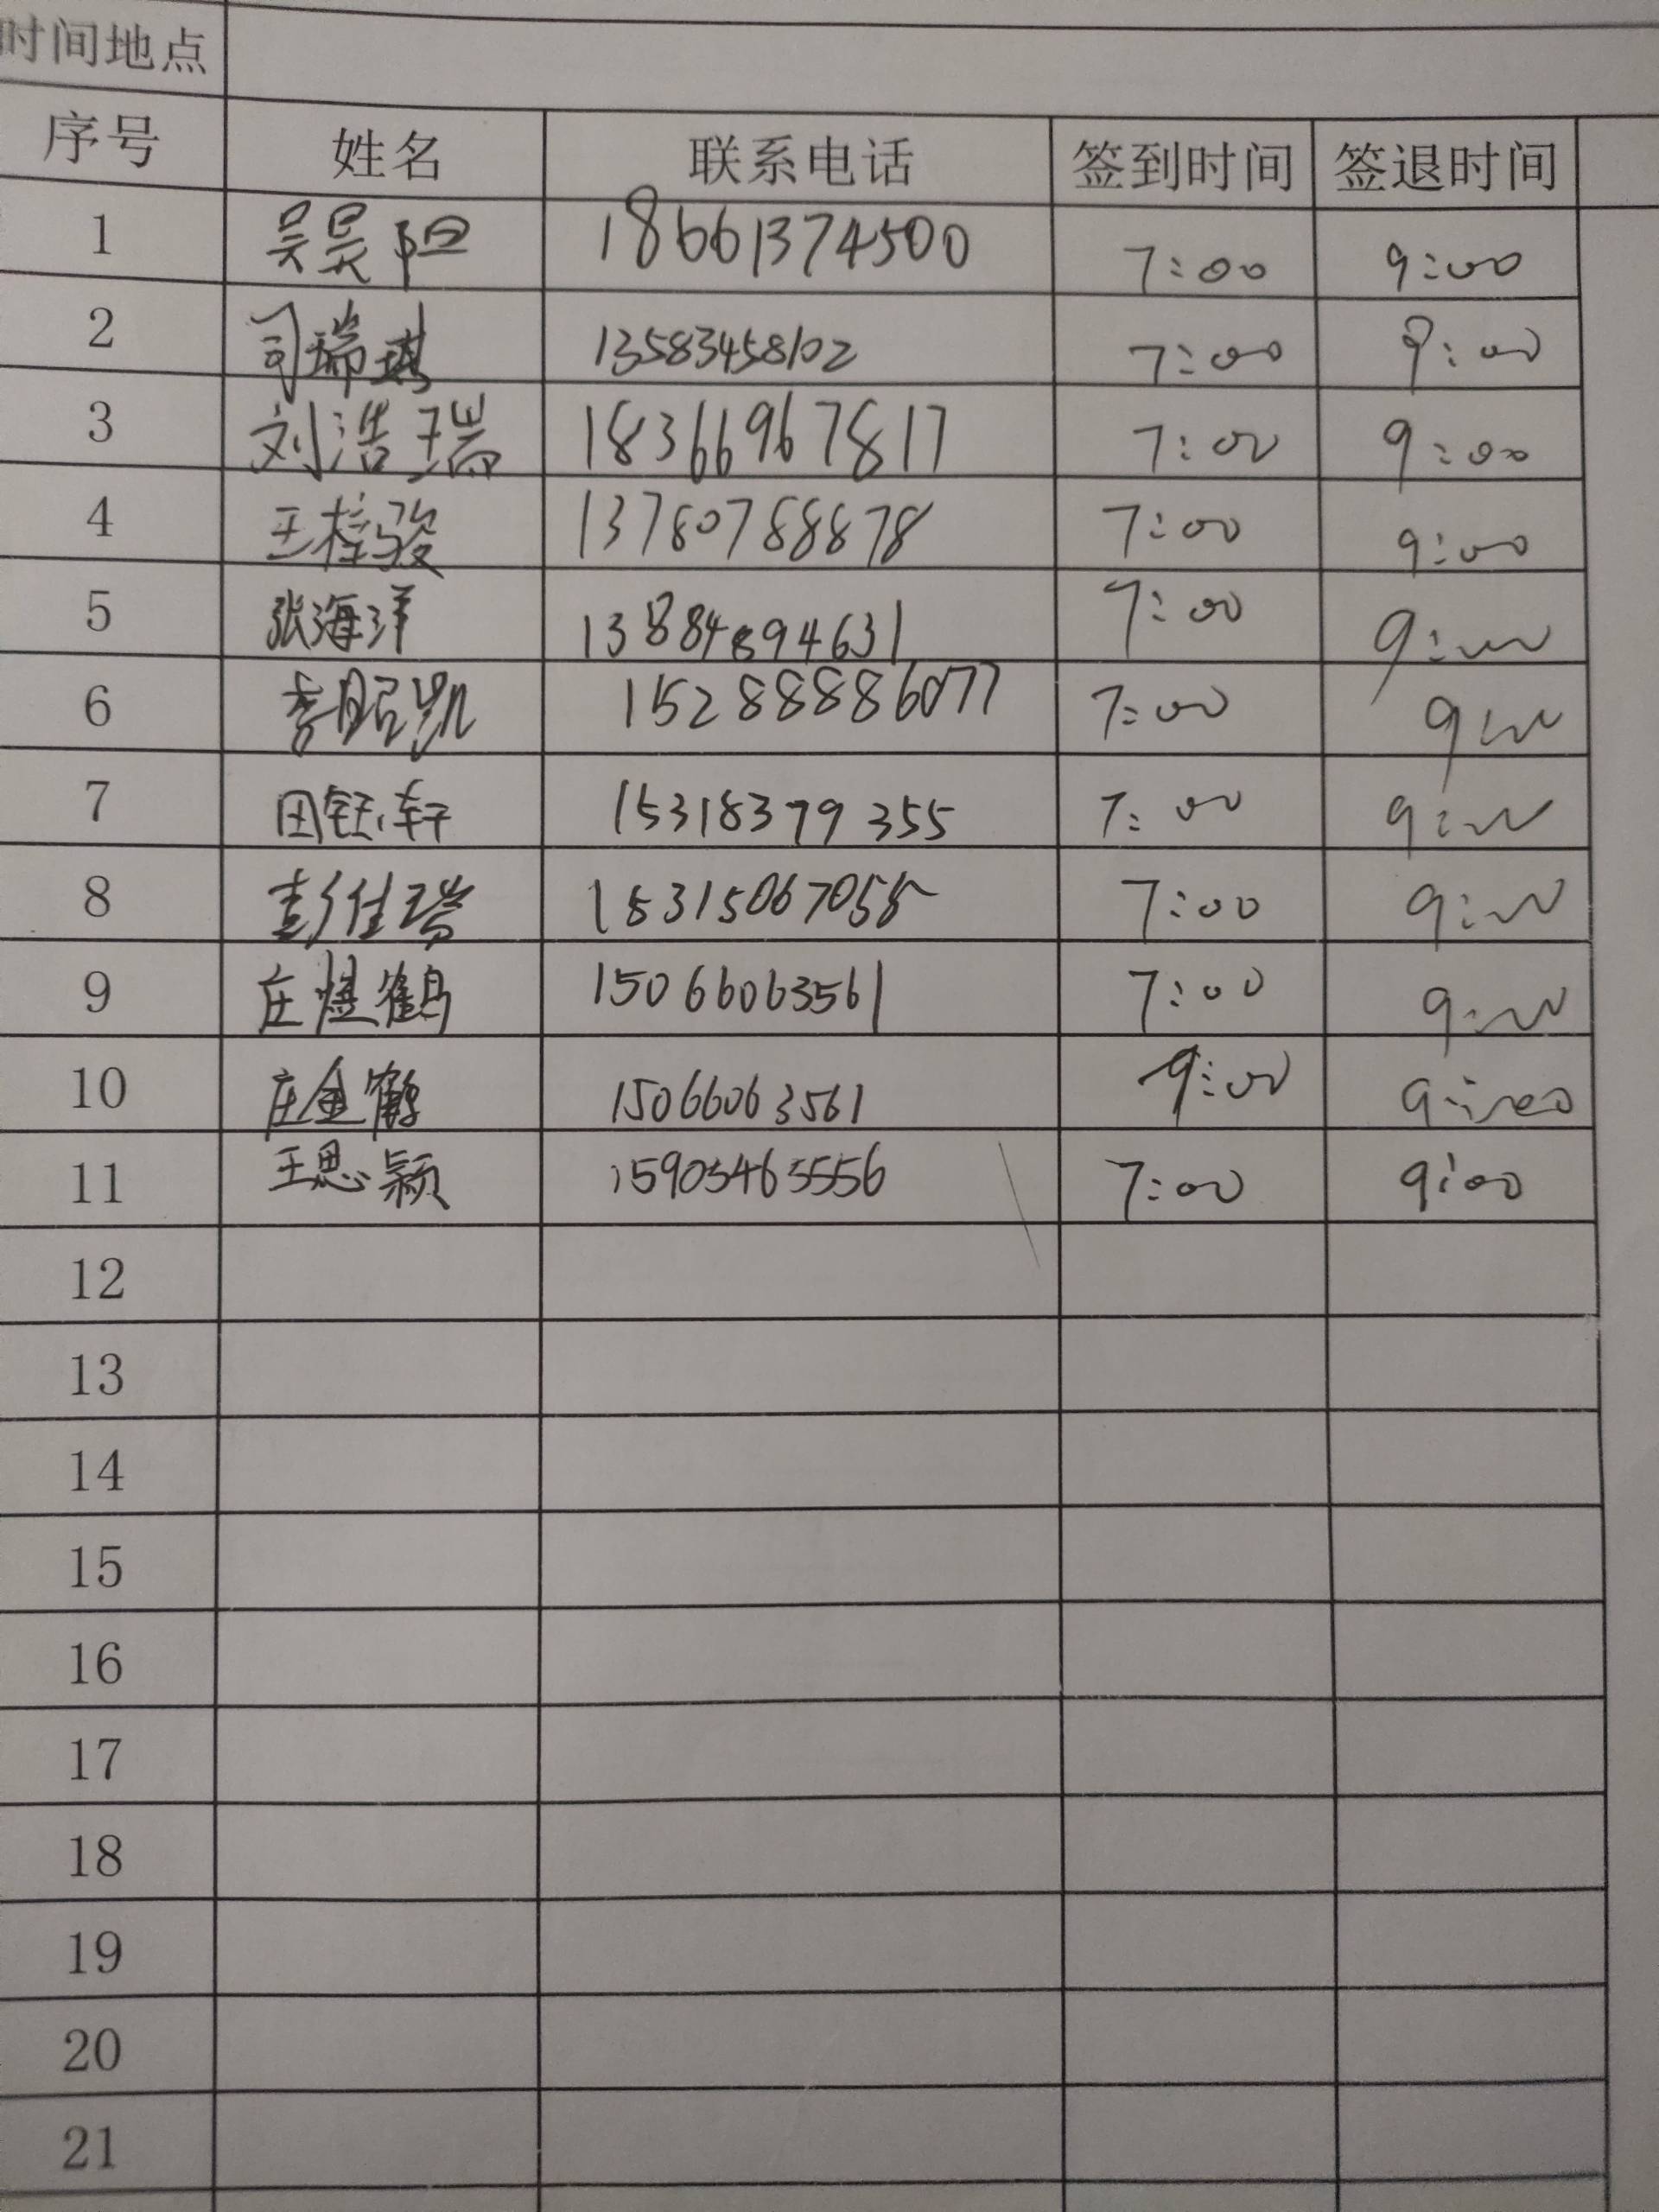 时间地点
序号 姓名 联系电话 签到时间 签退时间
1 吴昊阳 18661374500 7:00 9:00
2 司瑞琪 13583458102 7:00 9:00
3 刘浩瑞 18366967817 7:00 9:00
4 王梓骏 13780788878 7:00 9:00
5 张海洋 13884894631 7:00 9:00
6 李昭凯 15288886077 7:00 9:00
7 田钰轩 15318379355 7:00 9:00
8 彭佳瑞 7:00 9:00
9 15066063561 7:00 9:00
10 15066063561 9:00 9:00
11 王思颖 15905463556 7:00 9:00
12
13
14
15
16
17
18
19
20
21